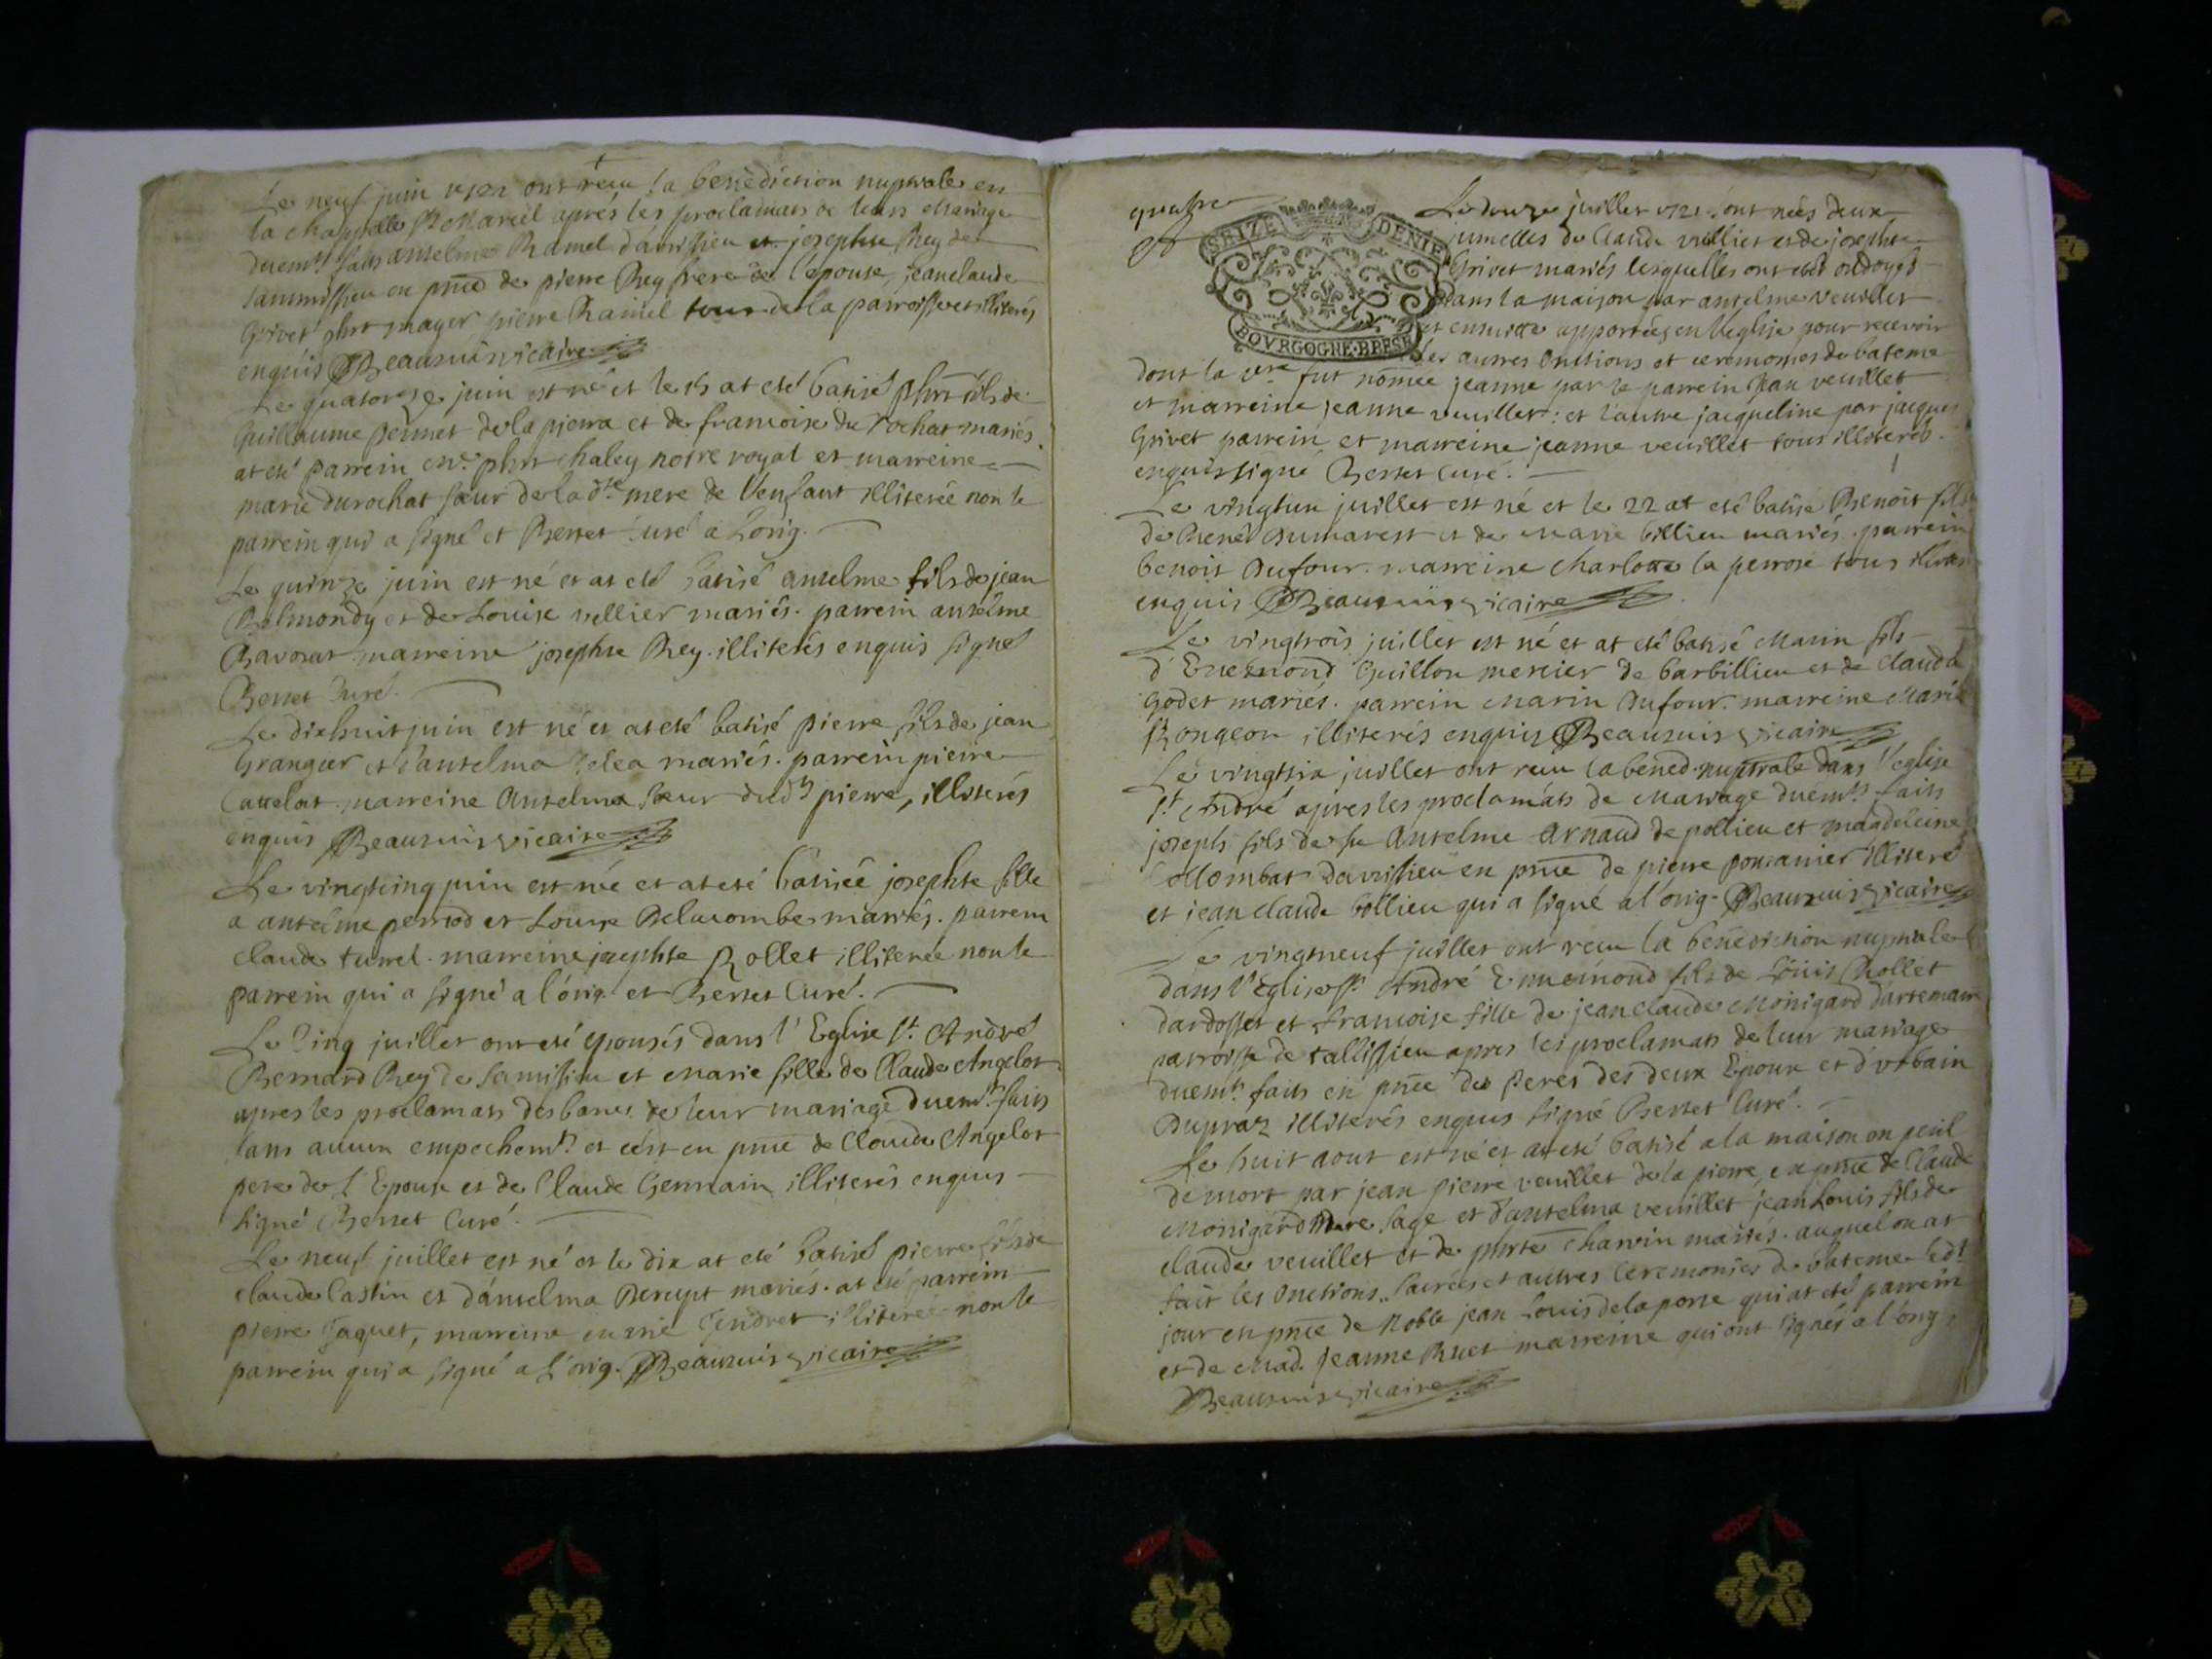 Le neuf juin 1721 ont reçu la benediction nuptiale en
la chappelle St Marcel aprés les proclamats de leurs Mariage
duemt. faits anselme Ramel d'avrissieu et josephte Rey de
sammissieu en pnce de pierre Rey frere de l'épouse, jeanclaude
Grivet phrt mager pierre Ramel tous de la parroisse illiterés
enquis Beausuis vicaire
Le quatorze juin est né et le 15 at eté batisé phrt fils de
Guillaume pernet de la pierra et de francoise du rochat mariés.
at eté parrein me. phrt chaley notre royal et marreine
marie durochat sœur de la dte mere de l'enfant illiterée non le
parrein qui a signé et Besset Curé a l'orig.
Le quinze juin est né et at eté batisé anselme fils de jean
Belmondy et de Louise vellier mariés. parrein anselme
Ravorat marreine josephte Rey. illiterés enquis signé
Besset Curé.
Le dixhuit juin est né et at eté batisé pierre fils de jean
Granger et d'antelma mariés. parrein pierre
Cattelat marreine Antelma sœur dudt pierre, illiterés
enquis Beausuis vicaire
Le vingtcinq juin est née et at eté batisée josephte fille
a antelme pernod et Louise Delacombe mariés. parrein
claude turrel. marreine josephte Rollet illiterée non le
parrein qui a signé a l'orig. et Besset Curé.
Le cinq juillet ont eté epousés dans l'Eglise St. André
Bernard Rey de samissieu et Marie fille de Claude Angelot
apres les proclamats des bans de leur mariage duemt. faits
sans aucun empechemt. et c'est en pnce de Claude Angelot
pere de l'Epouse et de Claude Germain illiterés enquis
signé Besset Curé.
Le neuf juillet est né et le dix at eté batisé pierre fils de
claude Castin et d'antelma Derupt mariés. at eté parrein
pierre Jaquet, marreine marie Gendret illiterée non le
parrein qui a signé a l'orig. Beausuis vicaire
quatre
SEIZE DENIE
BOVRGOGNE·BRESSE
Le douze juillet 1721 sont neés deux
jumelles de Claude vulliet et de josephte
Grivet mariés lesquelles ont eté ondoyés
dans la maison par anselme veuillet
et ensuitte apportées en l'eglise pour recevoir
les autres Onctions et ceremonies de bateme
dont la 1ere fut nomée jeanne par le parrein Jean veuillet
et marreine jeanne veuillet: et l'autre jacqueline par jacques
Grivet parrein et marreine jeanne veuillet tous illiterés
enquis signé Besset Curé.
Le vingtun juillet est né et le 22 at eté batisé Benoit fils
de René Dumarest et de Marie billieu mariés. parrein
benoit Dufour. marreine charlotte la perrose tous illiterés
enquis Beausuis vicaire
Le vingtrois juillet est né et at eté batisé Marin fils
d'Ennemond Guillon mercier de barbillieu et de Clauda
Godet mariés. parrein Marin Dufour. marreine Marie
Rongeon illiterés enquis Beausuis vicaire
Le vingtsix juillet ont reçu la bened. nuptiale dans l'eglise
St. André apres les proclamats de Mariage duemts faits
joseph fils de fu Antelme Arnaud de pollieu et magdeleine
Collombat d'avrissieu en pnce de pierre poncanier illiteré
et jean claude bollieu qui a signé a l'orig. Beausuis vicaire
Le vingtneuf juillet ont reçu la benediction nuptiale
dans l'Eglise St. André Ennemond fils de Loüis Chollet
dardosset et francoise fille de jeanclaude Monigard d'artemare
parroisse de tallissieu apres les proclamats de leur mariage
duemt. faits en pnce des Peres des deux Epoux et d'vrbain
Dupraz illiterés enquis signé Besset Curé.
Le huit aout est né et at eté batisé a la maison en peril
de mort par jean pierre veuillet de la pierre, en pnce de Claude
Monigard Mere sage et d'antelma veuillet jean Louis fils de
claude veuillet et de phrte charvin mariés. auquel on at
fait les Onctions sacrées et autres Ceremonies de bateme ledt
jour en pnce de Noble jean Louis de la porse qui at eté parrein
et de Mad. Jeanne Ruet marreine qui ont signés a l'orig.
Beausuis vicaire